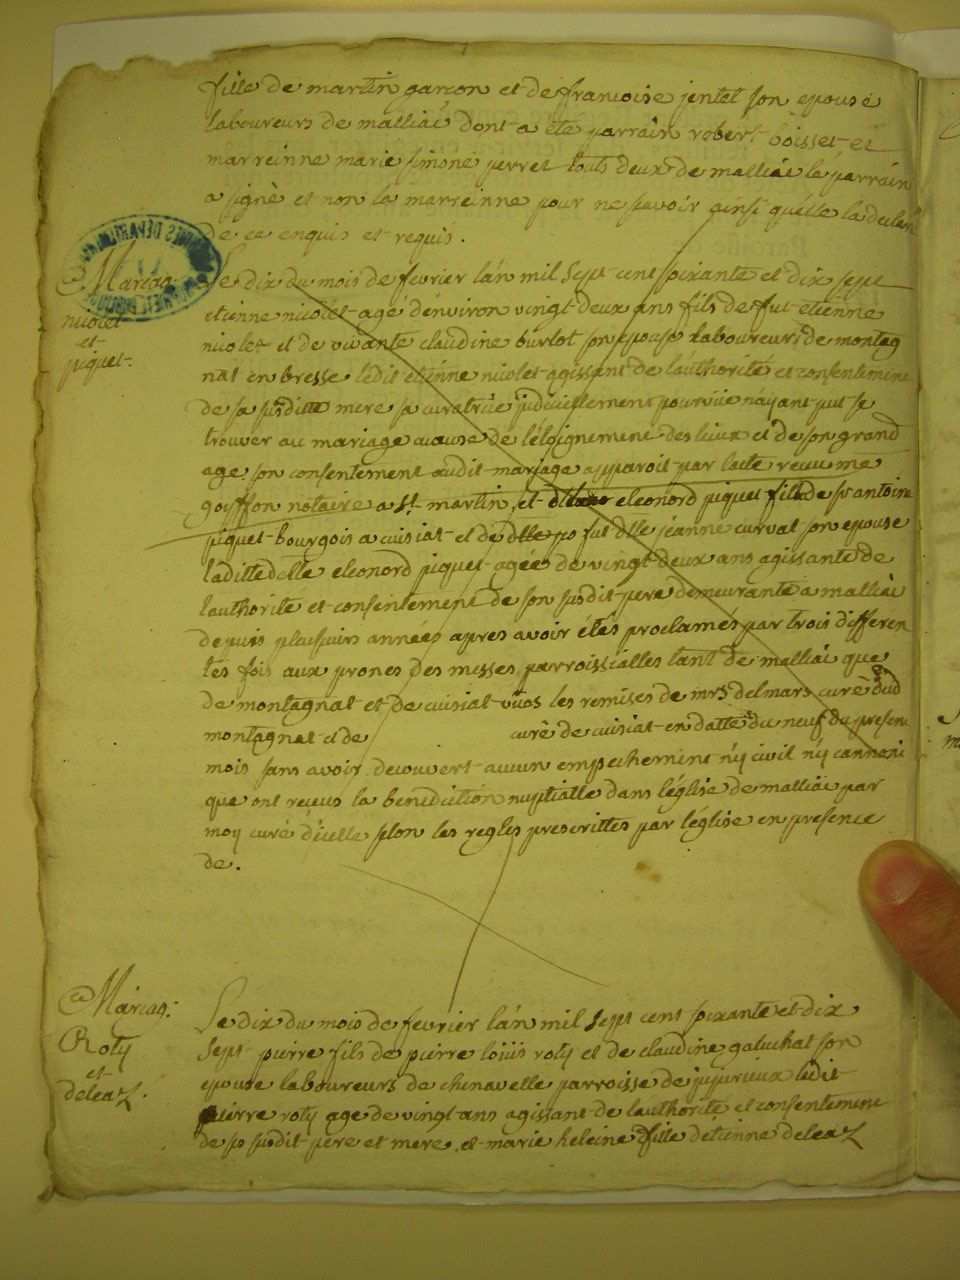 fille de martin garcon et de francoise jentet son epouse
laboureurs de malliac dont a ete parrain robert boisset et
marreinne marie simone perret touts deux de malliac le parrain
a signé et non la marreinne pour ne savoir ainsi quélle la declaré
de ce enquis et requis.
Mariag
nicolet
et
piquet.
Le dix du mois de fevrier lán mil sept cent soixante et dix sept
etienne nicolet agé dénviron vingt deux ans fils de fut etienne
nicolet et de vivante claudine burlot son epouse laboureurs de montag
nat en bresse ledit etienne nicolet agissant de láuthorité et consentement
de sa susditte mere sa curatrice judiciellement pourvüe náyant put se
trouver au mariage acause de léloignement des lieux et de son grand
age son consentement audit mariage apparoit par lacte recu me
goiffon notaire a st martin, et dlle eleonord piquet fille de sr antoine
piquet bourgois a cuisiat et de fut dlle jeanne curvat son epouse
laditte dlle eleonord piquet agée de vingt deux ans agissante de
lauthorité et consentement de son susdit pere demeurante a malliac
depuis plusiurs années apres avoir étés proclamés par trois differen
tes fois aux prones des messes parroissialles tant de malliac que
de montagnat et de cuisiat vüos les remises de mrs delmars curé dud
montagnat et de curé de cuisiat en datte du neuf du present
mois sans avoir decouvert aucun empechement ny civil ny cannoni
que ont receus la benediction nuptialle dans léglise de malliac par
moy curé dicelle selon les regles prescrittes par léglise en presence
de.
Mariag.
Roty
et
deleaz.
Le dix du mois de fevrier lán mil sept cent soixante et dix
sept pierre fils de pierre loiiis roty et de claudine galuchat son
epouse laboureurs de chenavelle parroisse de jujurieux ledit
pierre roty age de vingt ans agissant de láuthorité et consentement
de ses susdit pere et mere, et marie heleine fille detienne deleaz